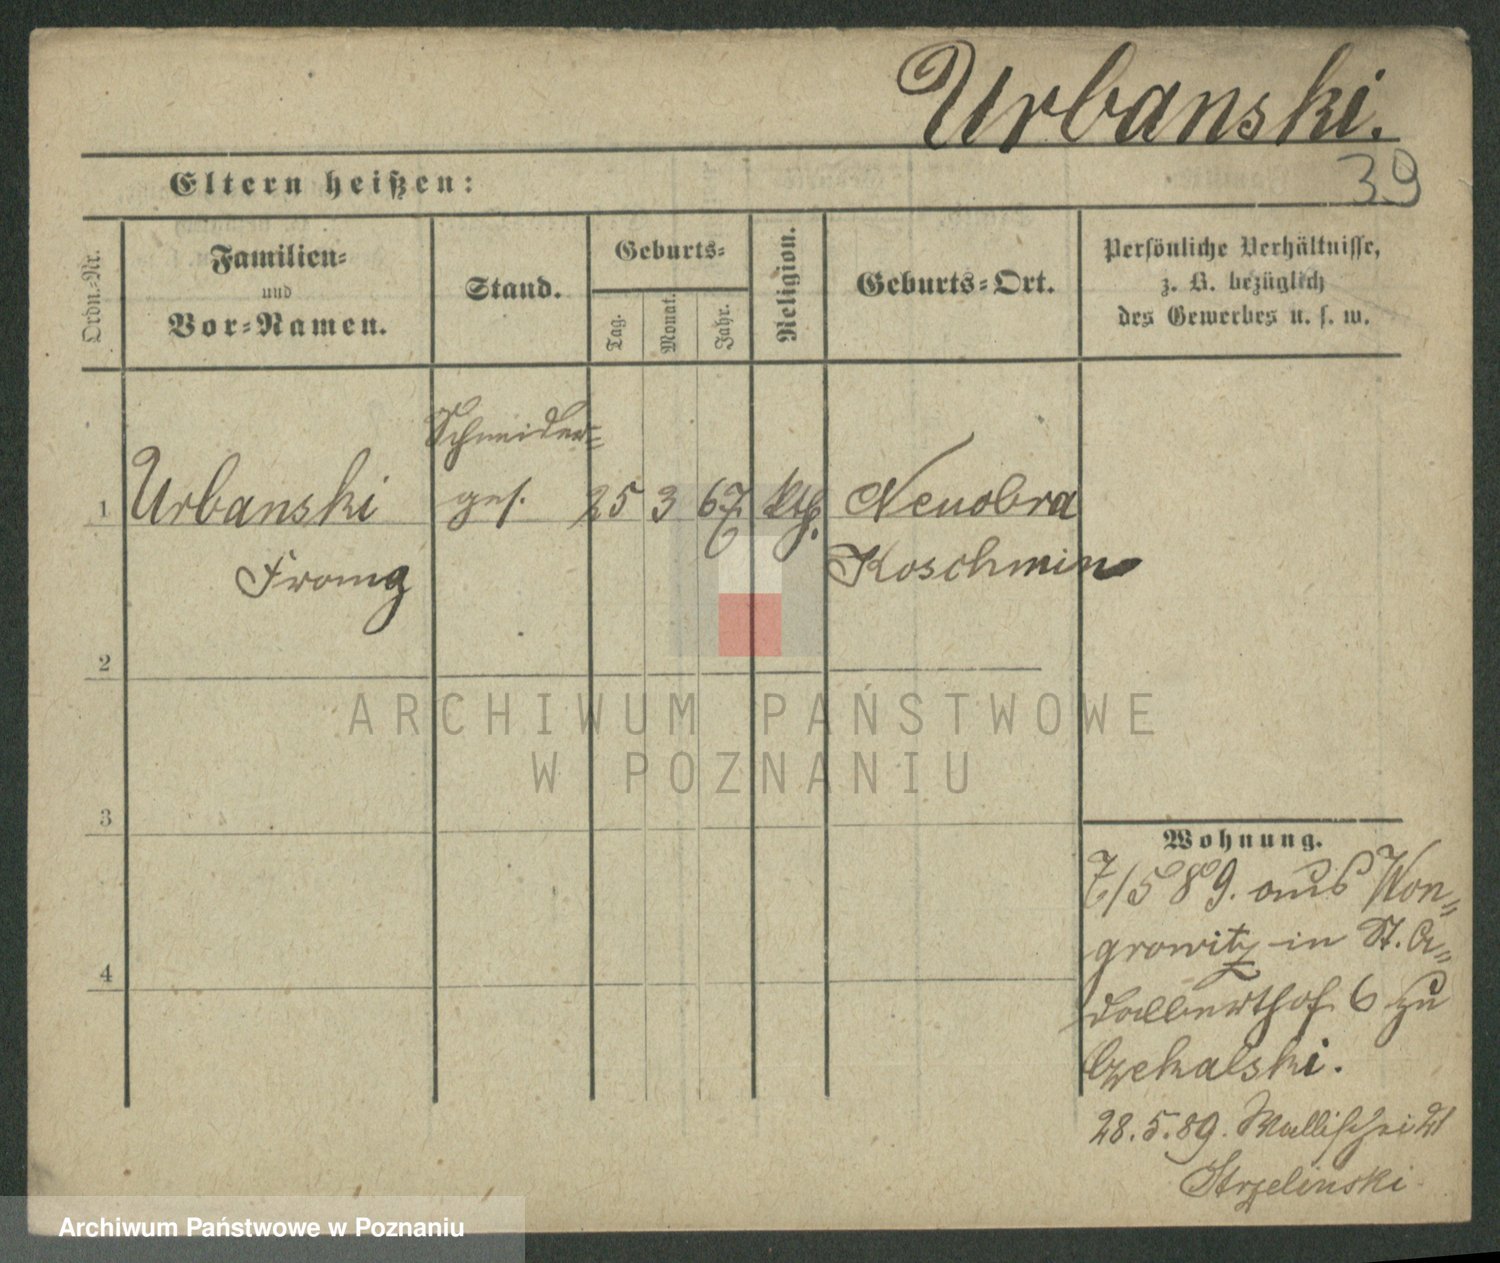 Urbanski.
39
Eltern heißen:
Ordn.-Nr.
Familien-
und
Vor-Namen.
Stand.
Geburts-
Tag.
Monat.
Jahr.
Religion.
Geburts-Ort.
Persönliche Verhältnisse,
z. B. bezüglich
des Gewerbes u. s. w.
Schneider-
1 Urbanski ges. 25 3 67 kth. Neuobra
Koschmin
2
3
4
ARCHIWUM PAŃSTWOWE
W POZNANIU
Wohnung.
7/5 89. aus Won-
growitz in St. A-
dalberthof 6 zu
Czekalski.
28.5.89. Wallischei 21
Strzelinski
Archiwum Państwowe w Poznaniu